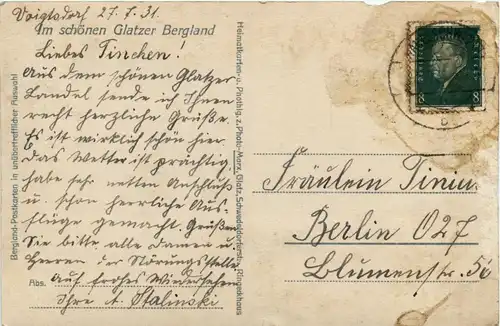 Voigtsdorf 27.7.31.
Im schönen Glatzer Bergland
Liebes Tinchen!
Aus dem schönen Glatzer
Landel sende ich Ihnen
recht herzliche Grüße.
Es ist wirklich schön hier.
Das Wetter ist prächtig,
habe sehr netten Anschluß
u. schon herrliche Aus-
flüge gemacht. Grüßen
Sie bitte alle Damen u.
Herren der Störungsstelle
Abs. Auf frohes Wiedersehen
Ihre A. Stalinski
Bergland-Postkarten in unübertrefflicher Auswahl
Heimatkarten- u. Photblg. z. Photo-Marx, Glatz, Schwedeldorferstr., Ringeckhaus
Fräulein
Berlin O27
Blumenstr. 56